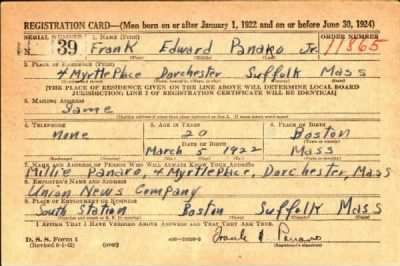 REGISTRATION CARD—(Men born on or after January 1, 1922 and on or before June 30, 1924)
SERIAL NUMBER 1. NAME (Print) ORDER NUMBER
N 39 Frank Edward Panaro Jr. 11865
(First) (Middle) (Last)
2. PLACE OF RESIDENCE (Print)
4 Myrtle Place Dorchester Suffolk Mass
[THE PLACE OF RESIDENCE GIVEN ON THE LINE ABOVE WILL DETERMINE LOCAL BOARD
JURISDICTION; LINE 2 OF REGISTRATION CERTIFICATE WILL BE IDENTICAL]
3. MAILING ADDRESS
Same
[Mailing address if other than place indicated on line 2. If same insert word same]
4. TELEPHONE 5. AGE IN YEARS 6. PLACE OF BIRTH
none 20 Boston
DATE OF BIRTH
March 5 1922 Mass
7. NAME AND ADDRESS OF PERSON WHO WILL ALWAYS KNOW YOUR ADDRESS
Millie Panaro, 4 Myrtle Place, Dorchester, Mass
8. EMPLOYER'S NAME AND ADDRESS
Union News Company
9. PLACE OF EMPLOYMENT OR BUSINESS
South Station Boston Suffolk Mass
I AFFIRM THAT I HAVE VERIFIED ABOVE ANSWERS AND THAT THEY ARE TRUE.
D. S. S. Form 1
(over)
Panaro